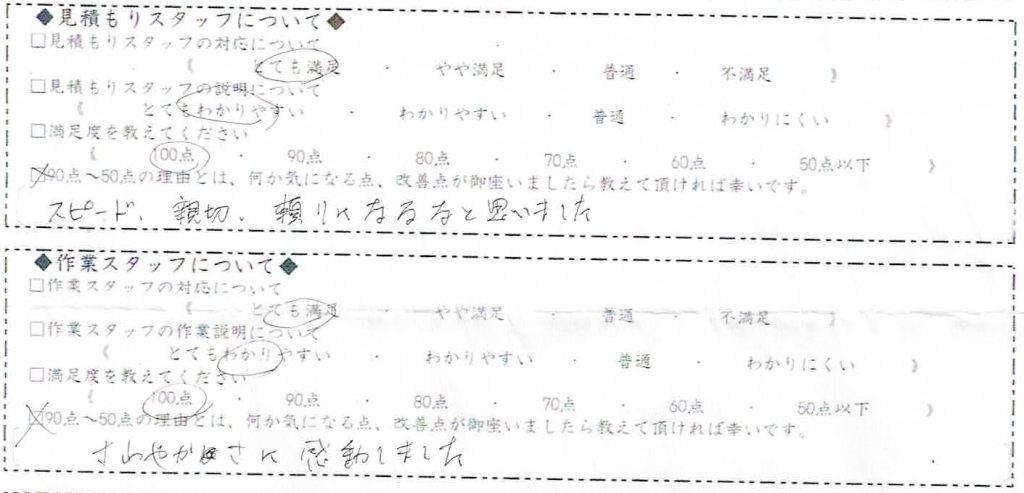 ◆見積もりスタッフについて◆
□見積もりスタッフの対応について
《 とても満足 ・ やや満足 ・ 普通 ・ 不満足 》
□見積もりスタッフの説明について
《 とてもわかりやすい ・ わかりやすい ・ 普通 ・ わかりにくい 》
□満足度を教えてください
《 100点 ・ 90点 ・ 80点 ・ 70点 ・ 60点 ・ 50点以下 》
□90点～50点の理由とは、何か気になる点、改善点が御座いましたら教えて頂ければ幸いです。
スピード、親切、頼りになるなと思いました
◆作業スタッフについて◆
□作業スタッフの対応について
《 とても満足 ・ やや満足 ・ 普通 ・ 不満足 》
□作業スタッフの作業説明について
《 とてもわかりやすい ・ わかりやすい ・ 普通 ・ わかりにくい 》
□満足度を教えてください
《 100点 ・ 90点 ・ 80点 ・ 70点 ・ 60点 ・ 50点以下 》
□90点～50点の理由とは、何か気になる点、改善点が御座いましたら教えて頂ければ幸いです。
さわやかさに感動しました